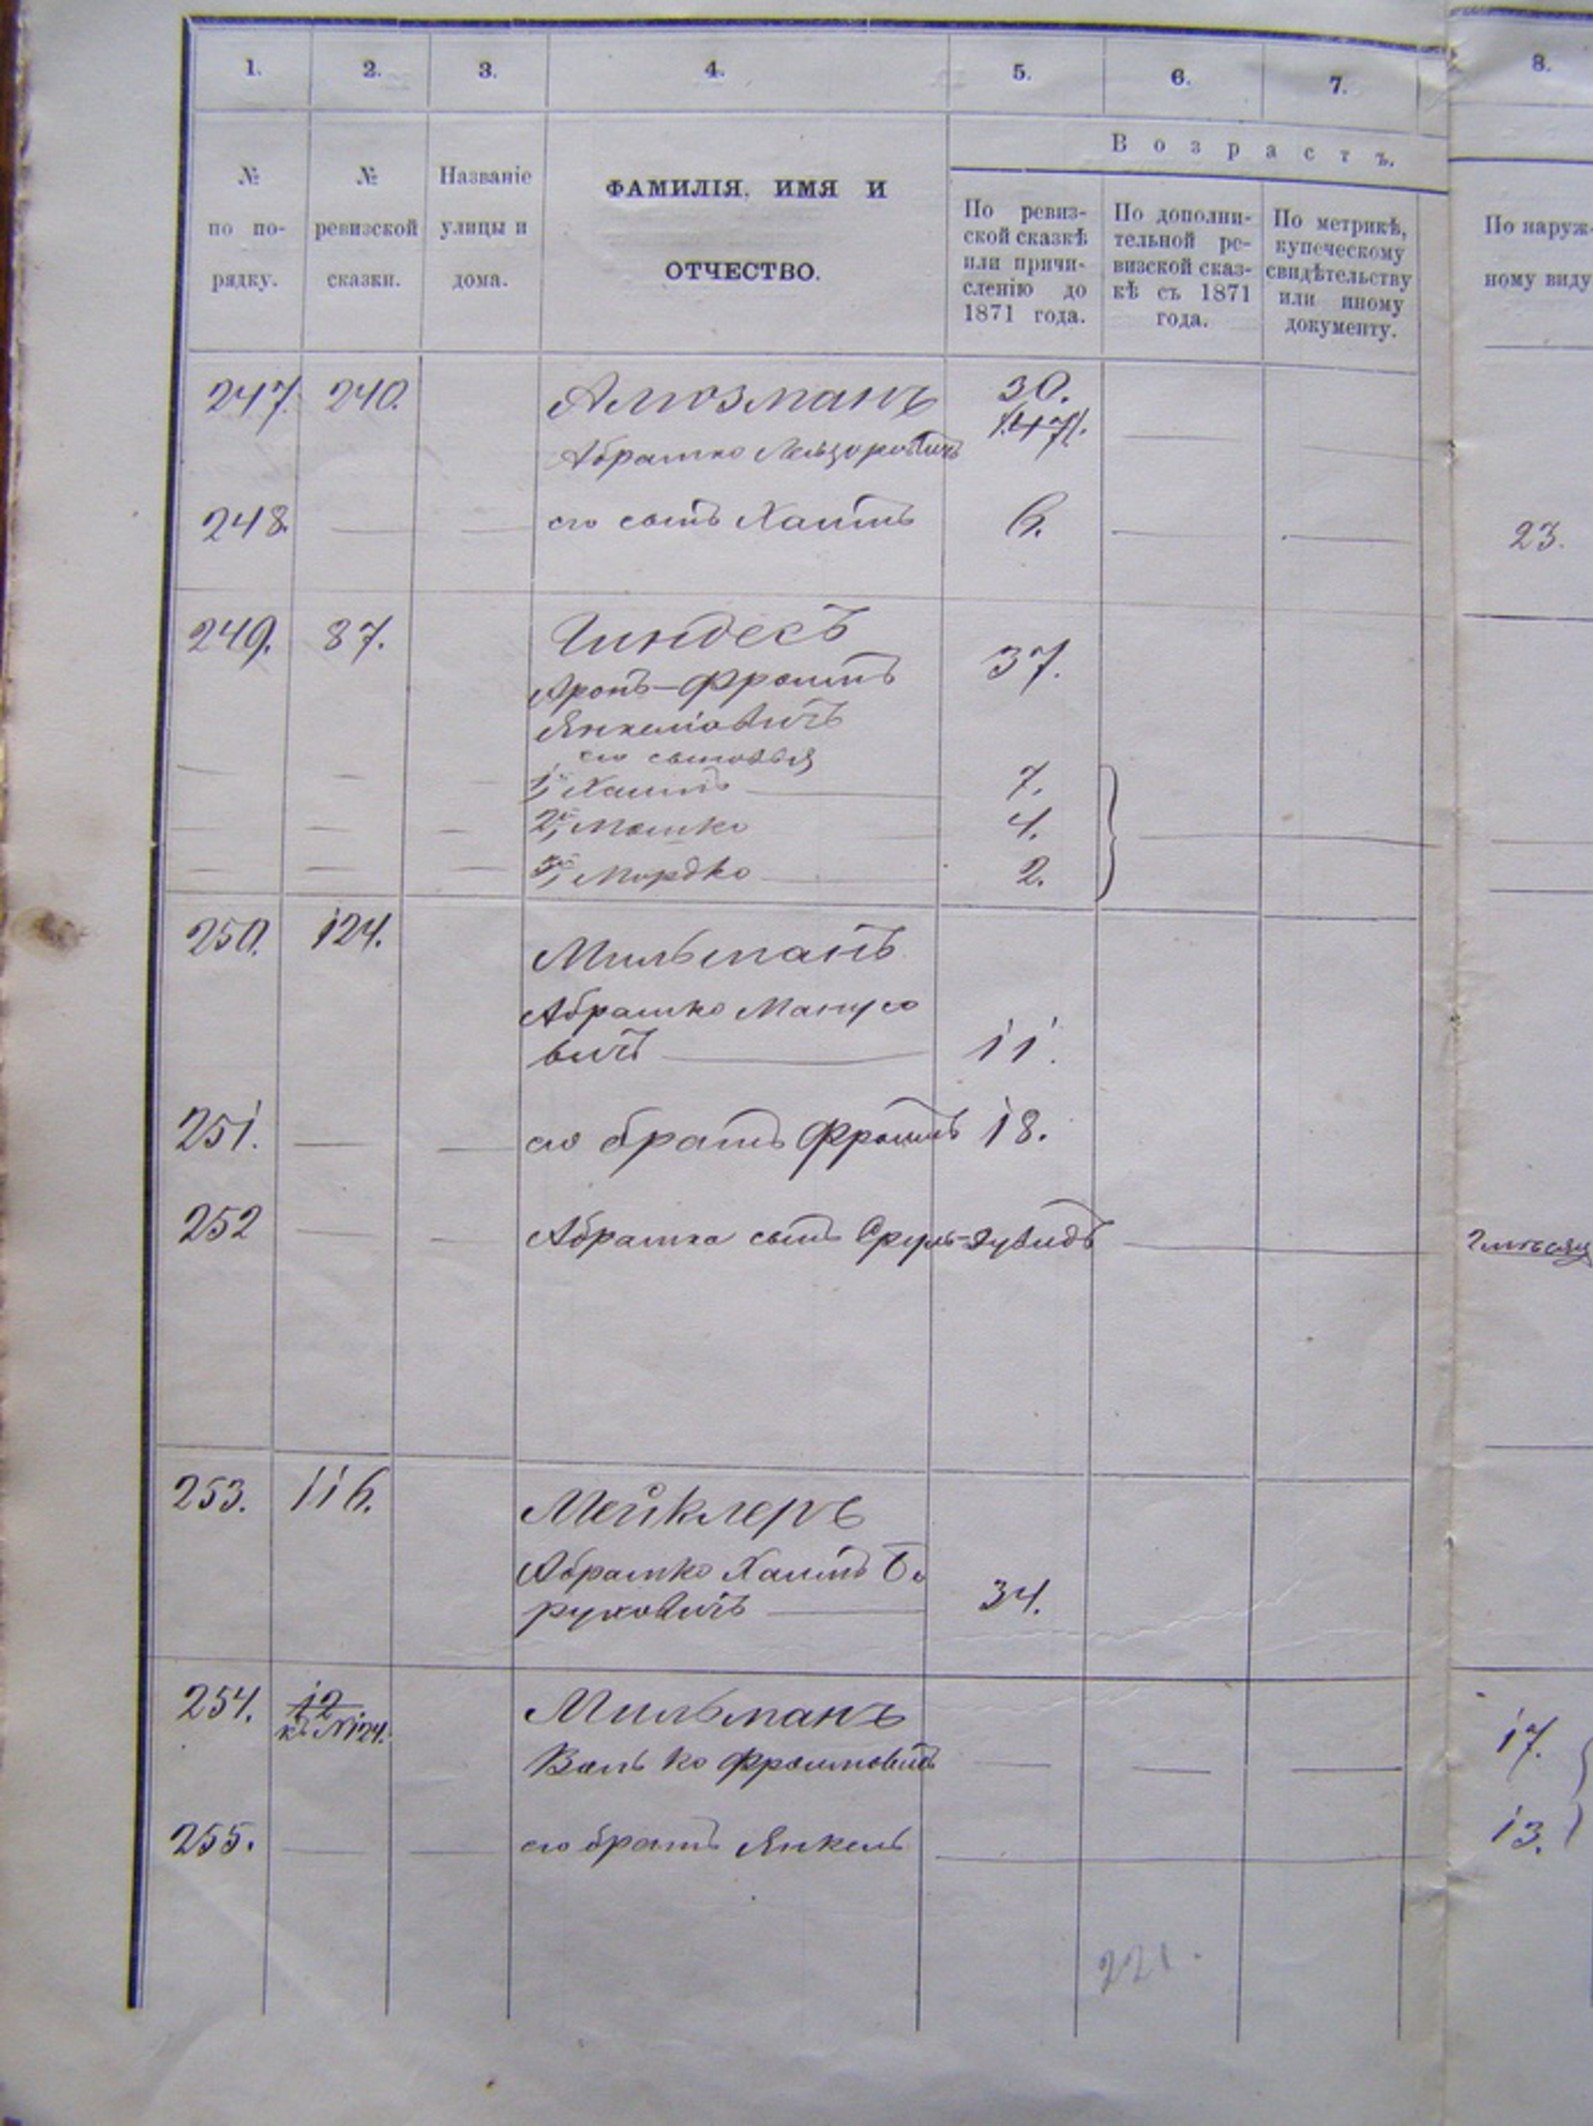 1. 2. 3. 4. 5. 6. 7. 8.
№ по по-рядку.
№ ревизской сказки.
Названіе улицы и дома.
ФАМИЛІЯ, ИМЯ И ОТЧЕСТВО.
Возрастъ.
По ревиз-ской сказкѣ или причи-сленію до 1871 года.
По дополни-тельной ре-визской сказ-кѣ съ 1871 года.
По метрикѣ, купеческому свидѣтельству или иному документу.
По наруж-ному виду
247. 240. 30.
Абрамко
248. его сынъ Хаимъ 6. 23.
249. 87. Гиндесъ
Аронъ-Фроимъ 37.
Янкеліовичъ
его сыновья
1й, Хаимъ 7.
2й, Мошко 4.
3й, Мордко 2.
250. 124. Мильманъ
Абрамко Манусо
вичъ 11.
251. его братъ Фроимъ 18.
252 Абрамка сынъ Сруль-Дувидъ
253. 116. Мейклеръ
Абрамко Хаимъ Бо
руховичъ 34.
254. 12 Мильманъ
къ №124. Волько Фроимовичъ 17.
255. его братъ Янкель 13.
221.